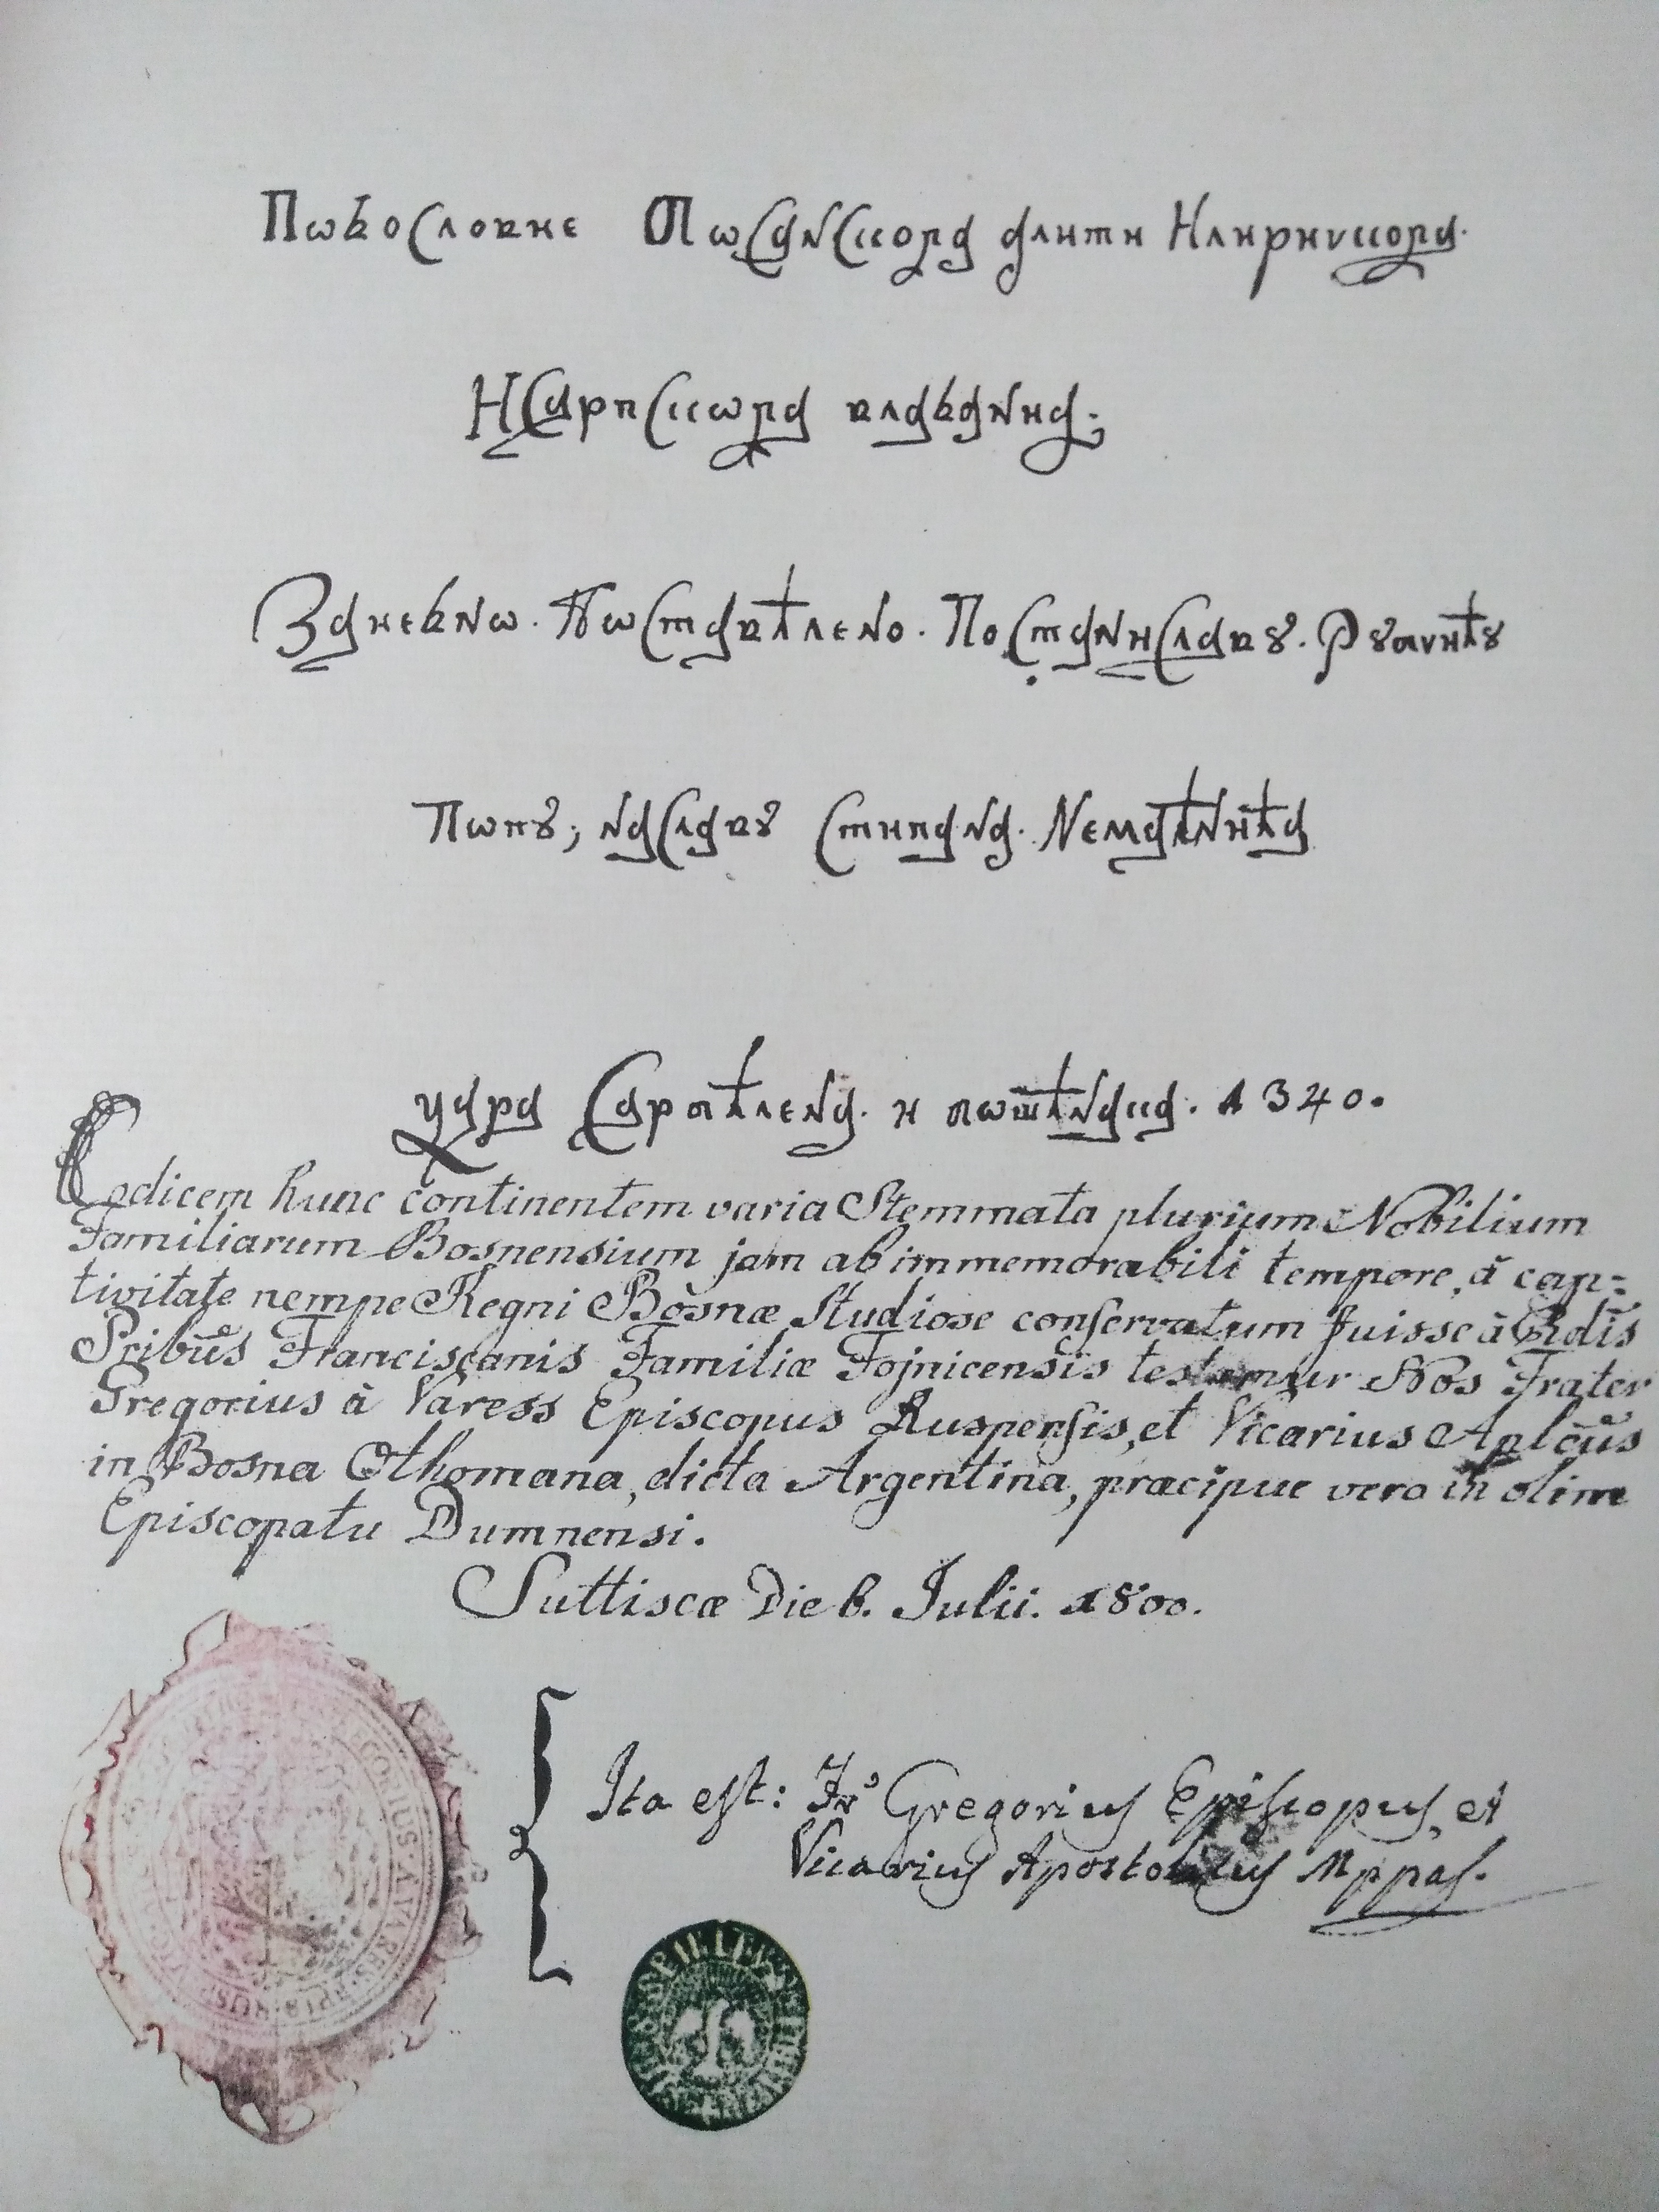 Пωбословне Пωсанскога алити Илиричкога
Исарпскωга влабаниа;
Заиебнω. Пωставћлено. Постаниславꙋ. Рꙋпчићꙋ
Пωпꙋ; наславꙋ Стипана. Немаћнића
цара Сарпћлена. и пωшћнака. 1340.
Codicem hunc continentem varia Stemmata plurium Nobilium
Familiarum Bosnensium jam ab immemorabili tempore, à cap=
tivitate nempe Regni Bosnæ studiose conservatum fuisse à Rdis
Pribus Franciscanis Familiæ Fojnicensis testamur Nos Frater
Gregorius à Varess Episcopus Ruspensis, et Vicarius Aplcus
in Bosna Othomana, dicta Argentina, præcipue vero in olim
Episcopatu Dumnensi.
Suttiscæ Die 6. Julii. 1800.
Ita est: Fr Gregorius Episcopus, et
Vicarius Apostolicus Mppas.